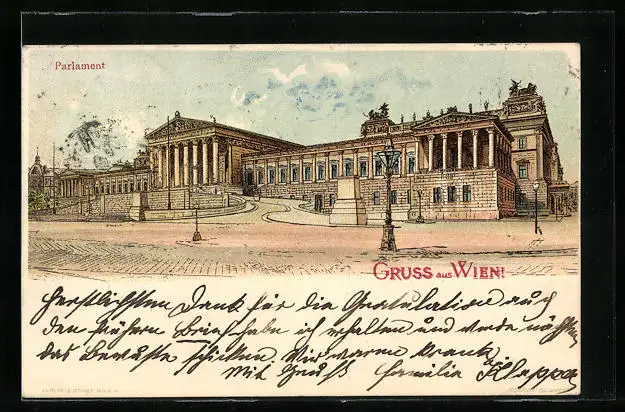 Parlament
GRUSS aus WIEN!
Herzlichsten Dank für die Gratulation auch
den frühern Brief habe ich erhalten und werde nächstens
das Bewuste schicken. Wir waren krank
Mit Gruß Familie Klepper